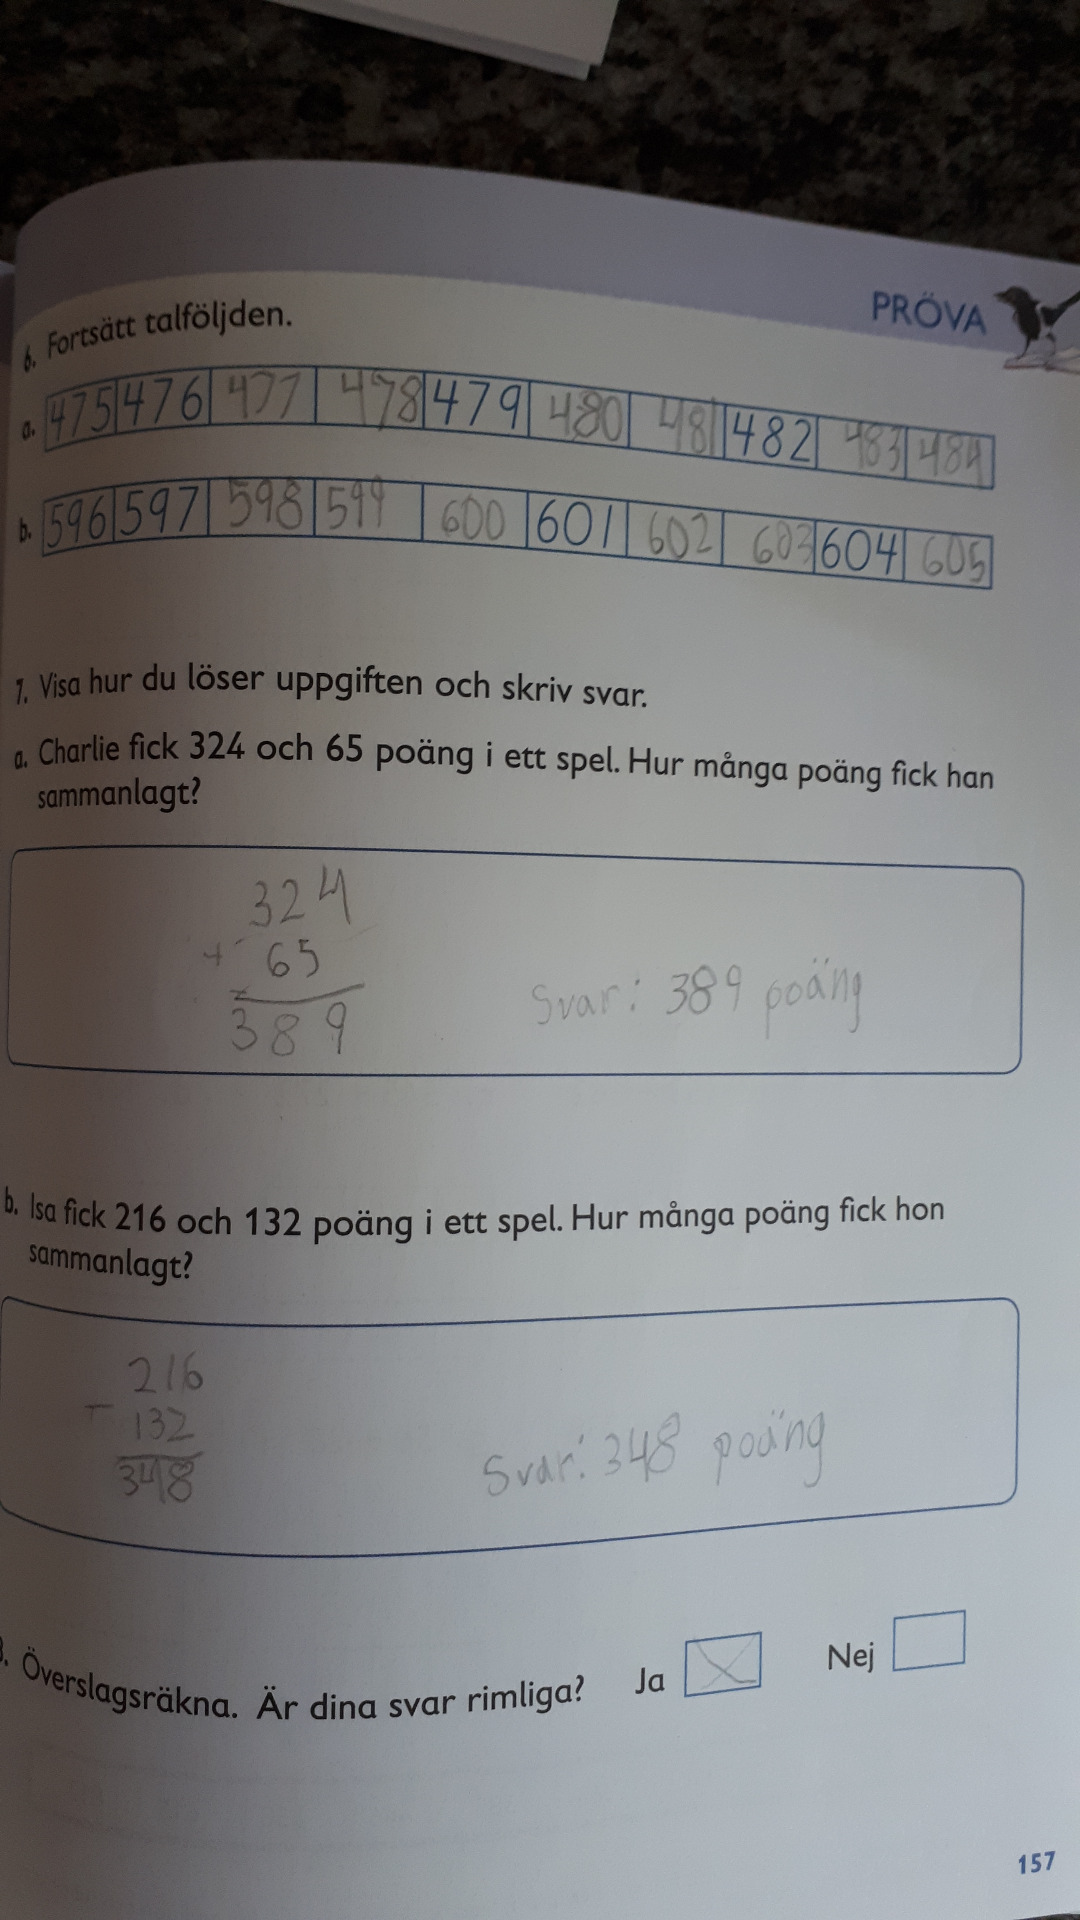 PRÖVA
6. Fortsätt talföljden.
a. 475 476 477 478 479 480 481 482 483 484
b. 596 597 598 599 600 601 602 603 604 605
7. Visa hur du löser uppgiften och skriv svar.
a. Charlie fick 324 och 65 poäng i ett spel. Hur många poäng fick han
sammanlagt?
324
+ 65
389
Svar: 389 poäng
b. Isa fick 216 och 132 poäng i ett spel. Hur många poäng fick hon
sammanlagt?
216
- 132
348
Svar: 348 poäng
8. Överslagsräkna. Är dina svar rimliga? Ja Nej
157